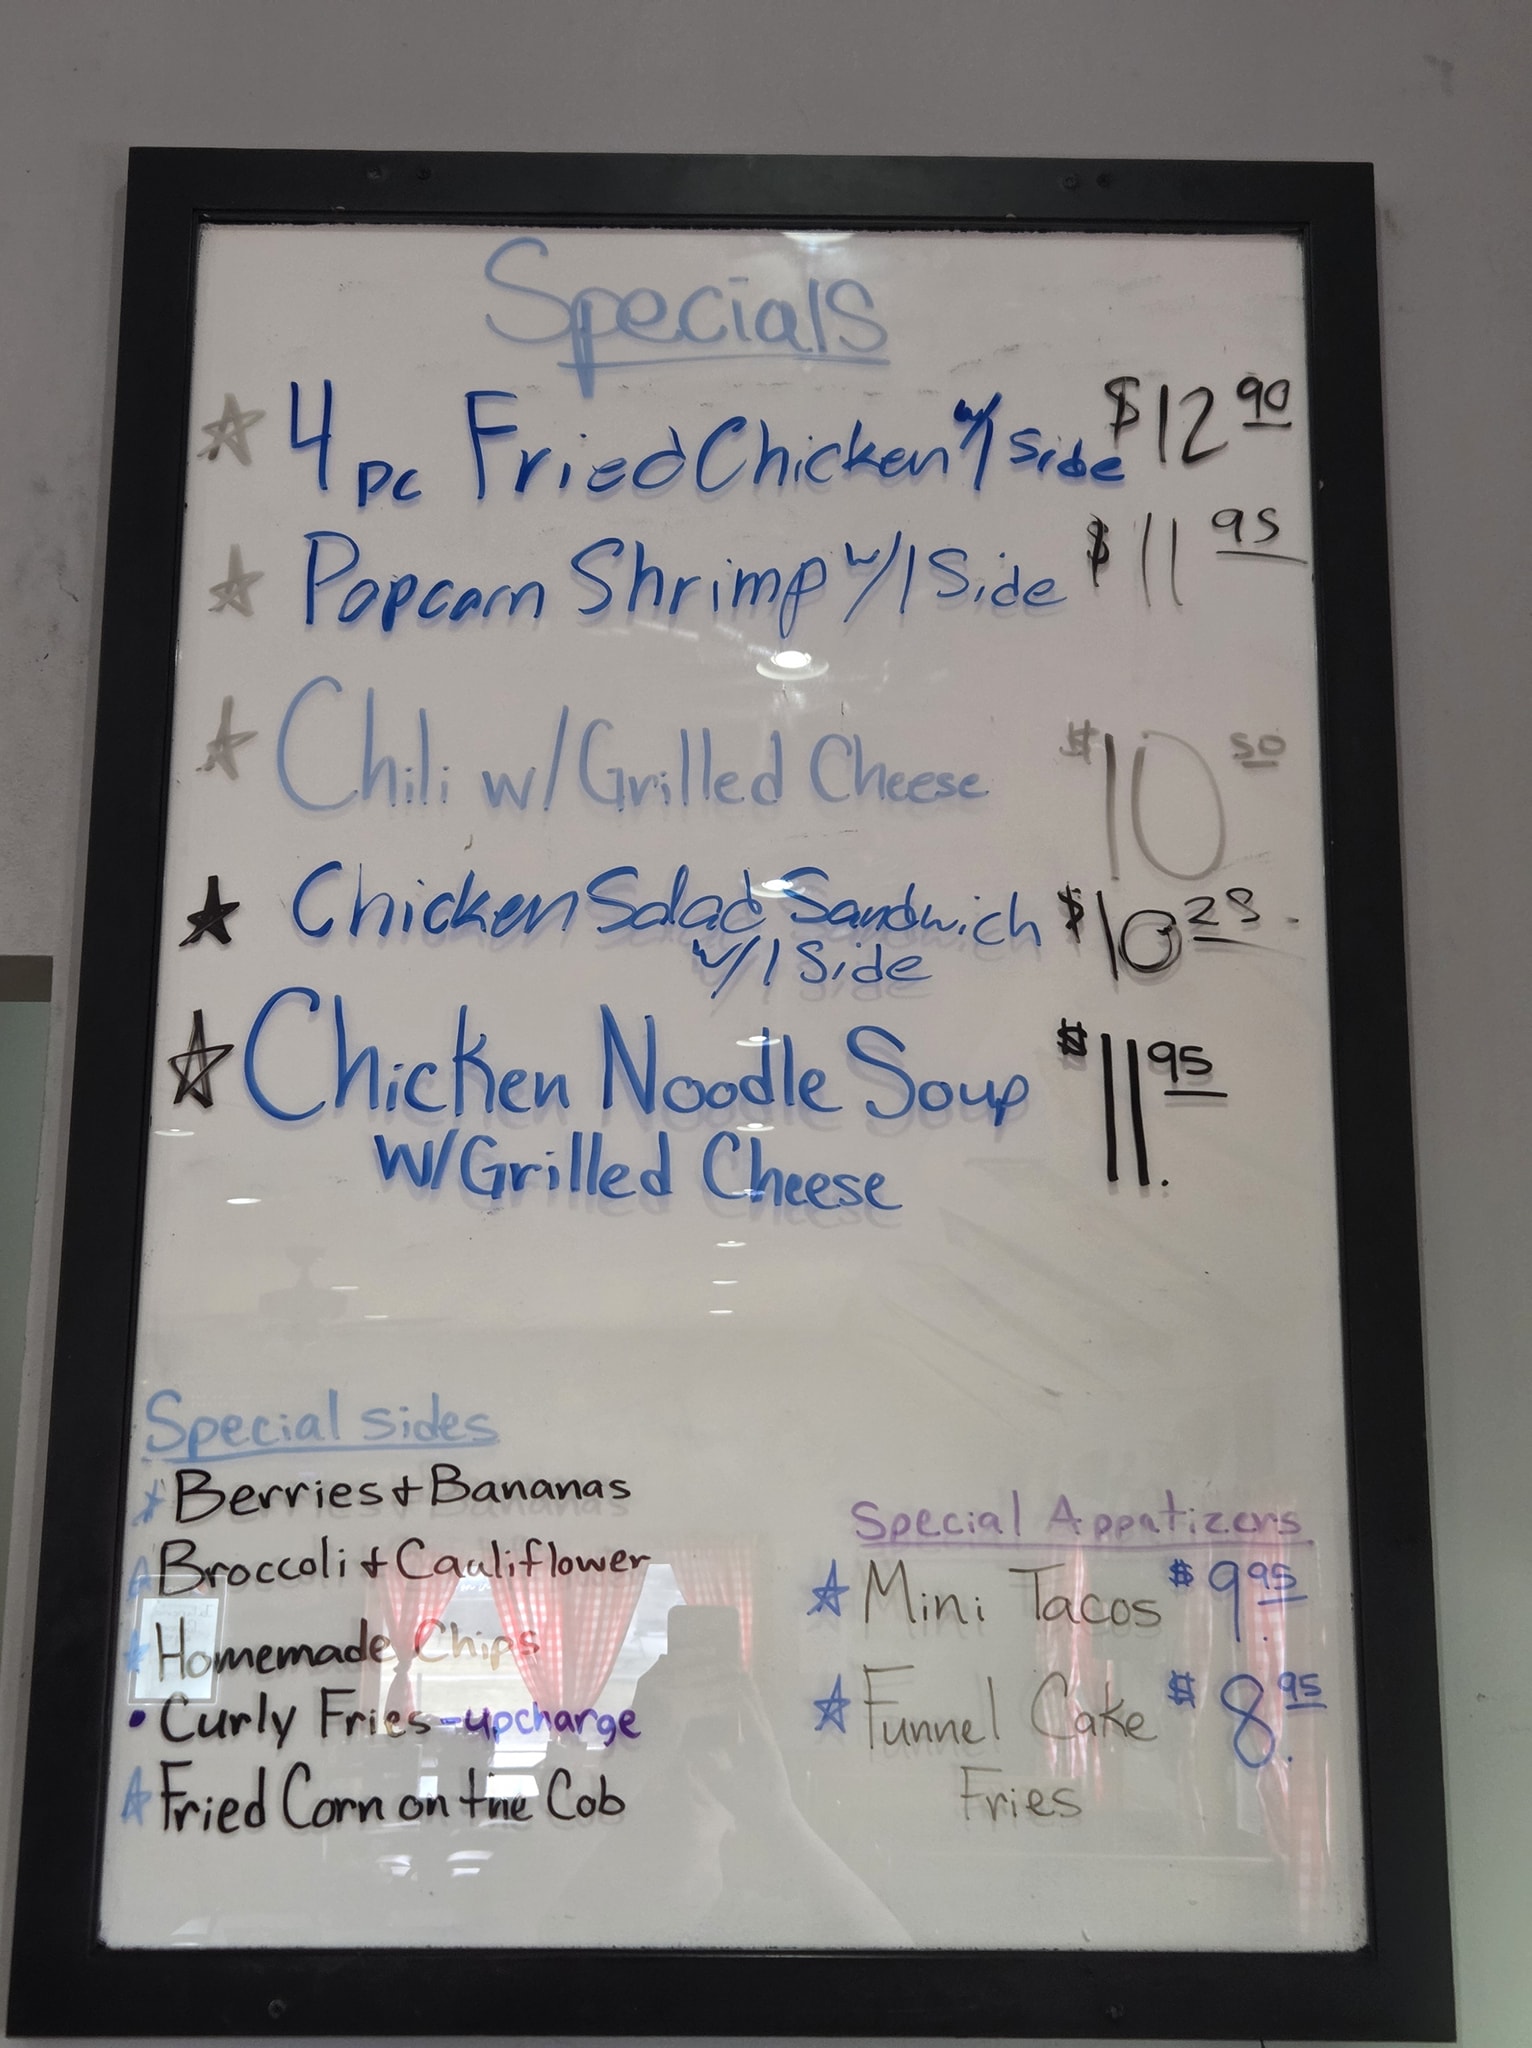 Specials
4 pc Fried Chicken w/1 side $12 90
Popcorn Shrimp w/1 Side $11 95
Chili w/Grilled Cheese $10 50
Chicken Salad Sandwich $10 25
w/1 Side
Chicken Noodle Soup $11 95.
W/Grilled Cheese
Special sides
Berries + Bananas
Broccoli + Cauliflower
Homemade Chips
• Curly Fries - upcharge
Fried Corn on the Cob
Special Appatizers
Mini Tacos $9.95
Funnel Cake $8.95
Fries